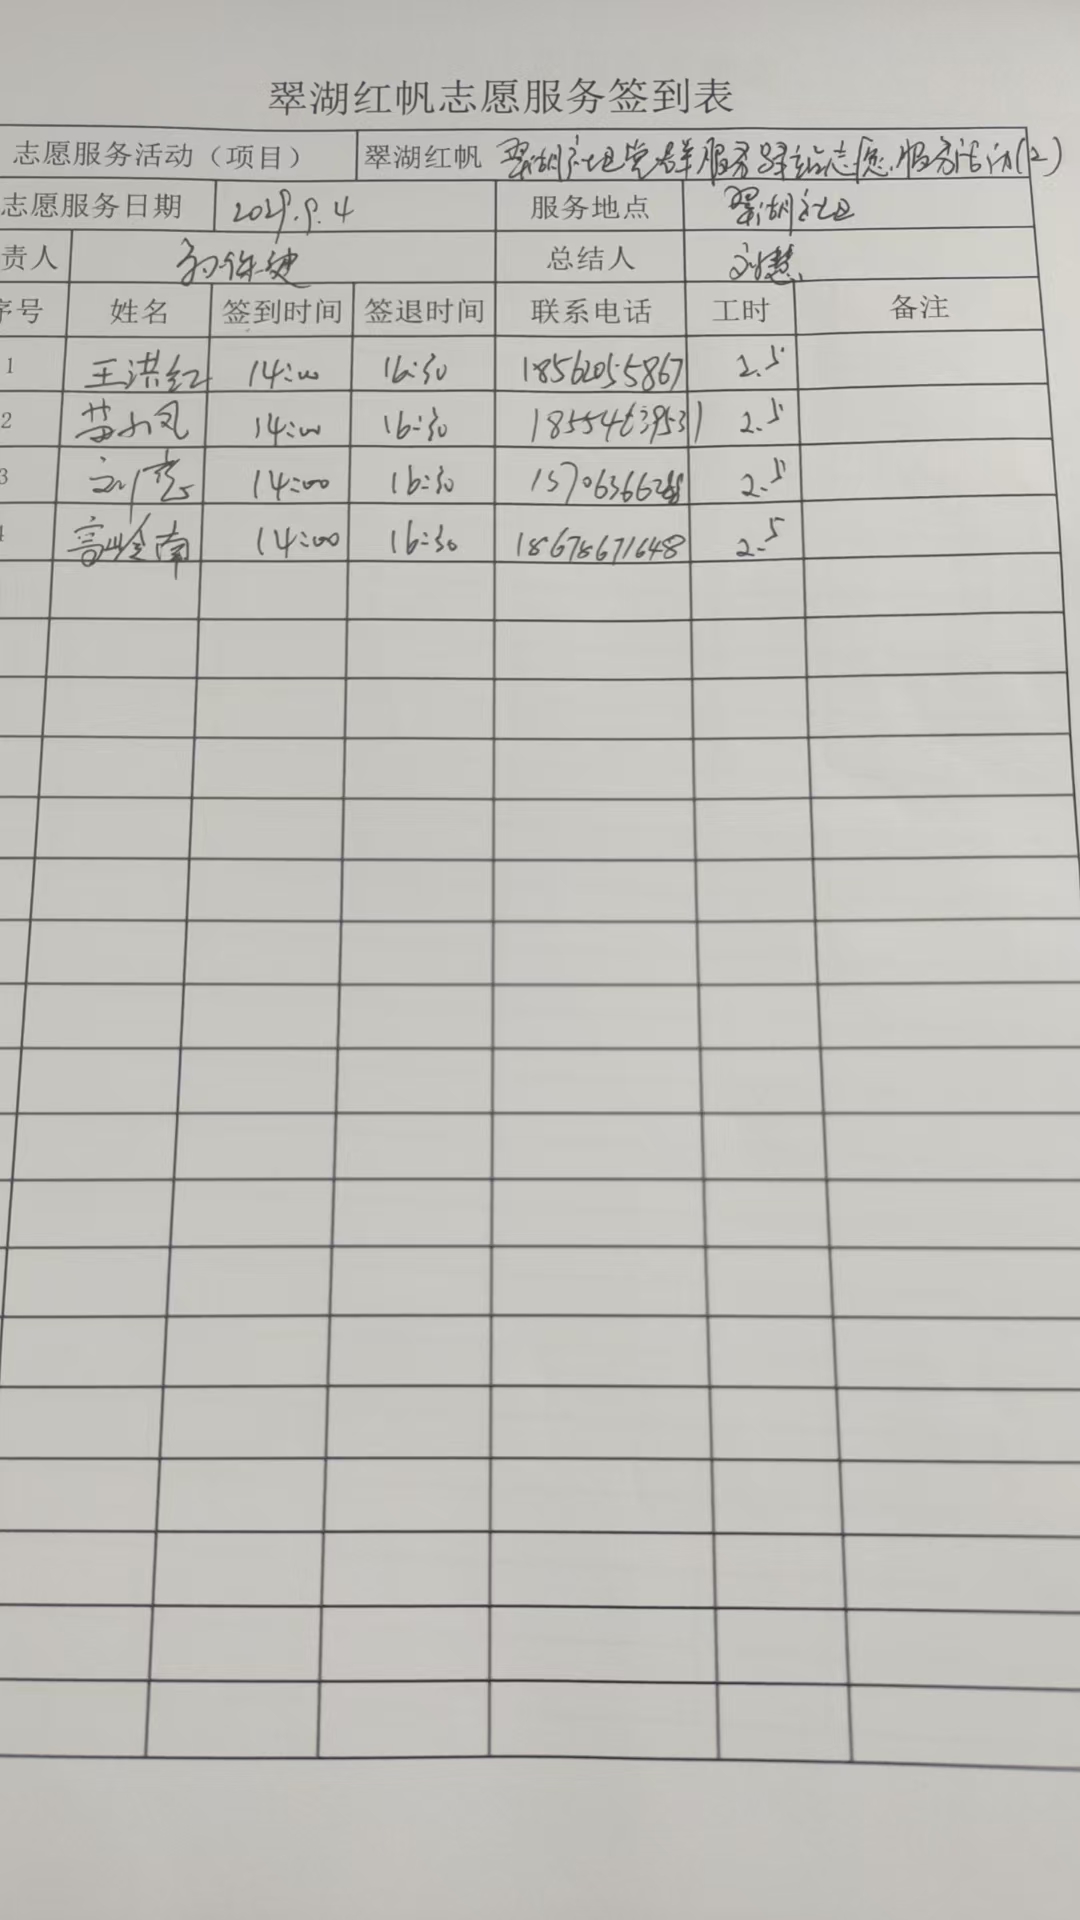 翠湖红帆志愿服务签到表
志愿服务活动（项目） 翠湖红帆 翠湖社区党群服务驿站志愿服务活动(2)
志愿服务日期 服务地点 翠湖社区
责人 总结人 刘慧
序号 姓名 签到时间 签退时间 联系电话 工时 备注
1 王洪红 14:00 16:30 18562055867 2.5
2 苗小凤 14:00 16:30 2.5
3 14:00 16:30 2.5
4 高岭南 14:00 16:30 18678671648 2.5